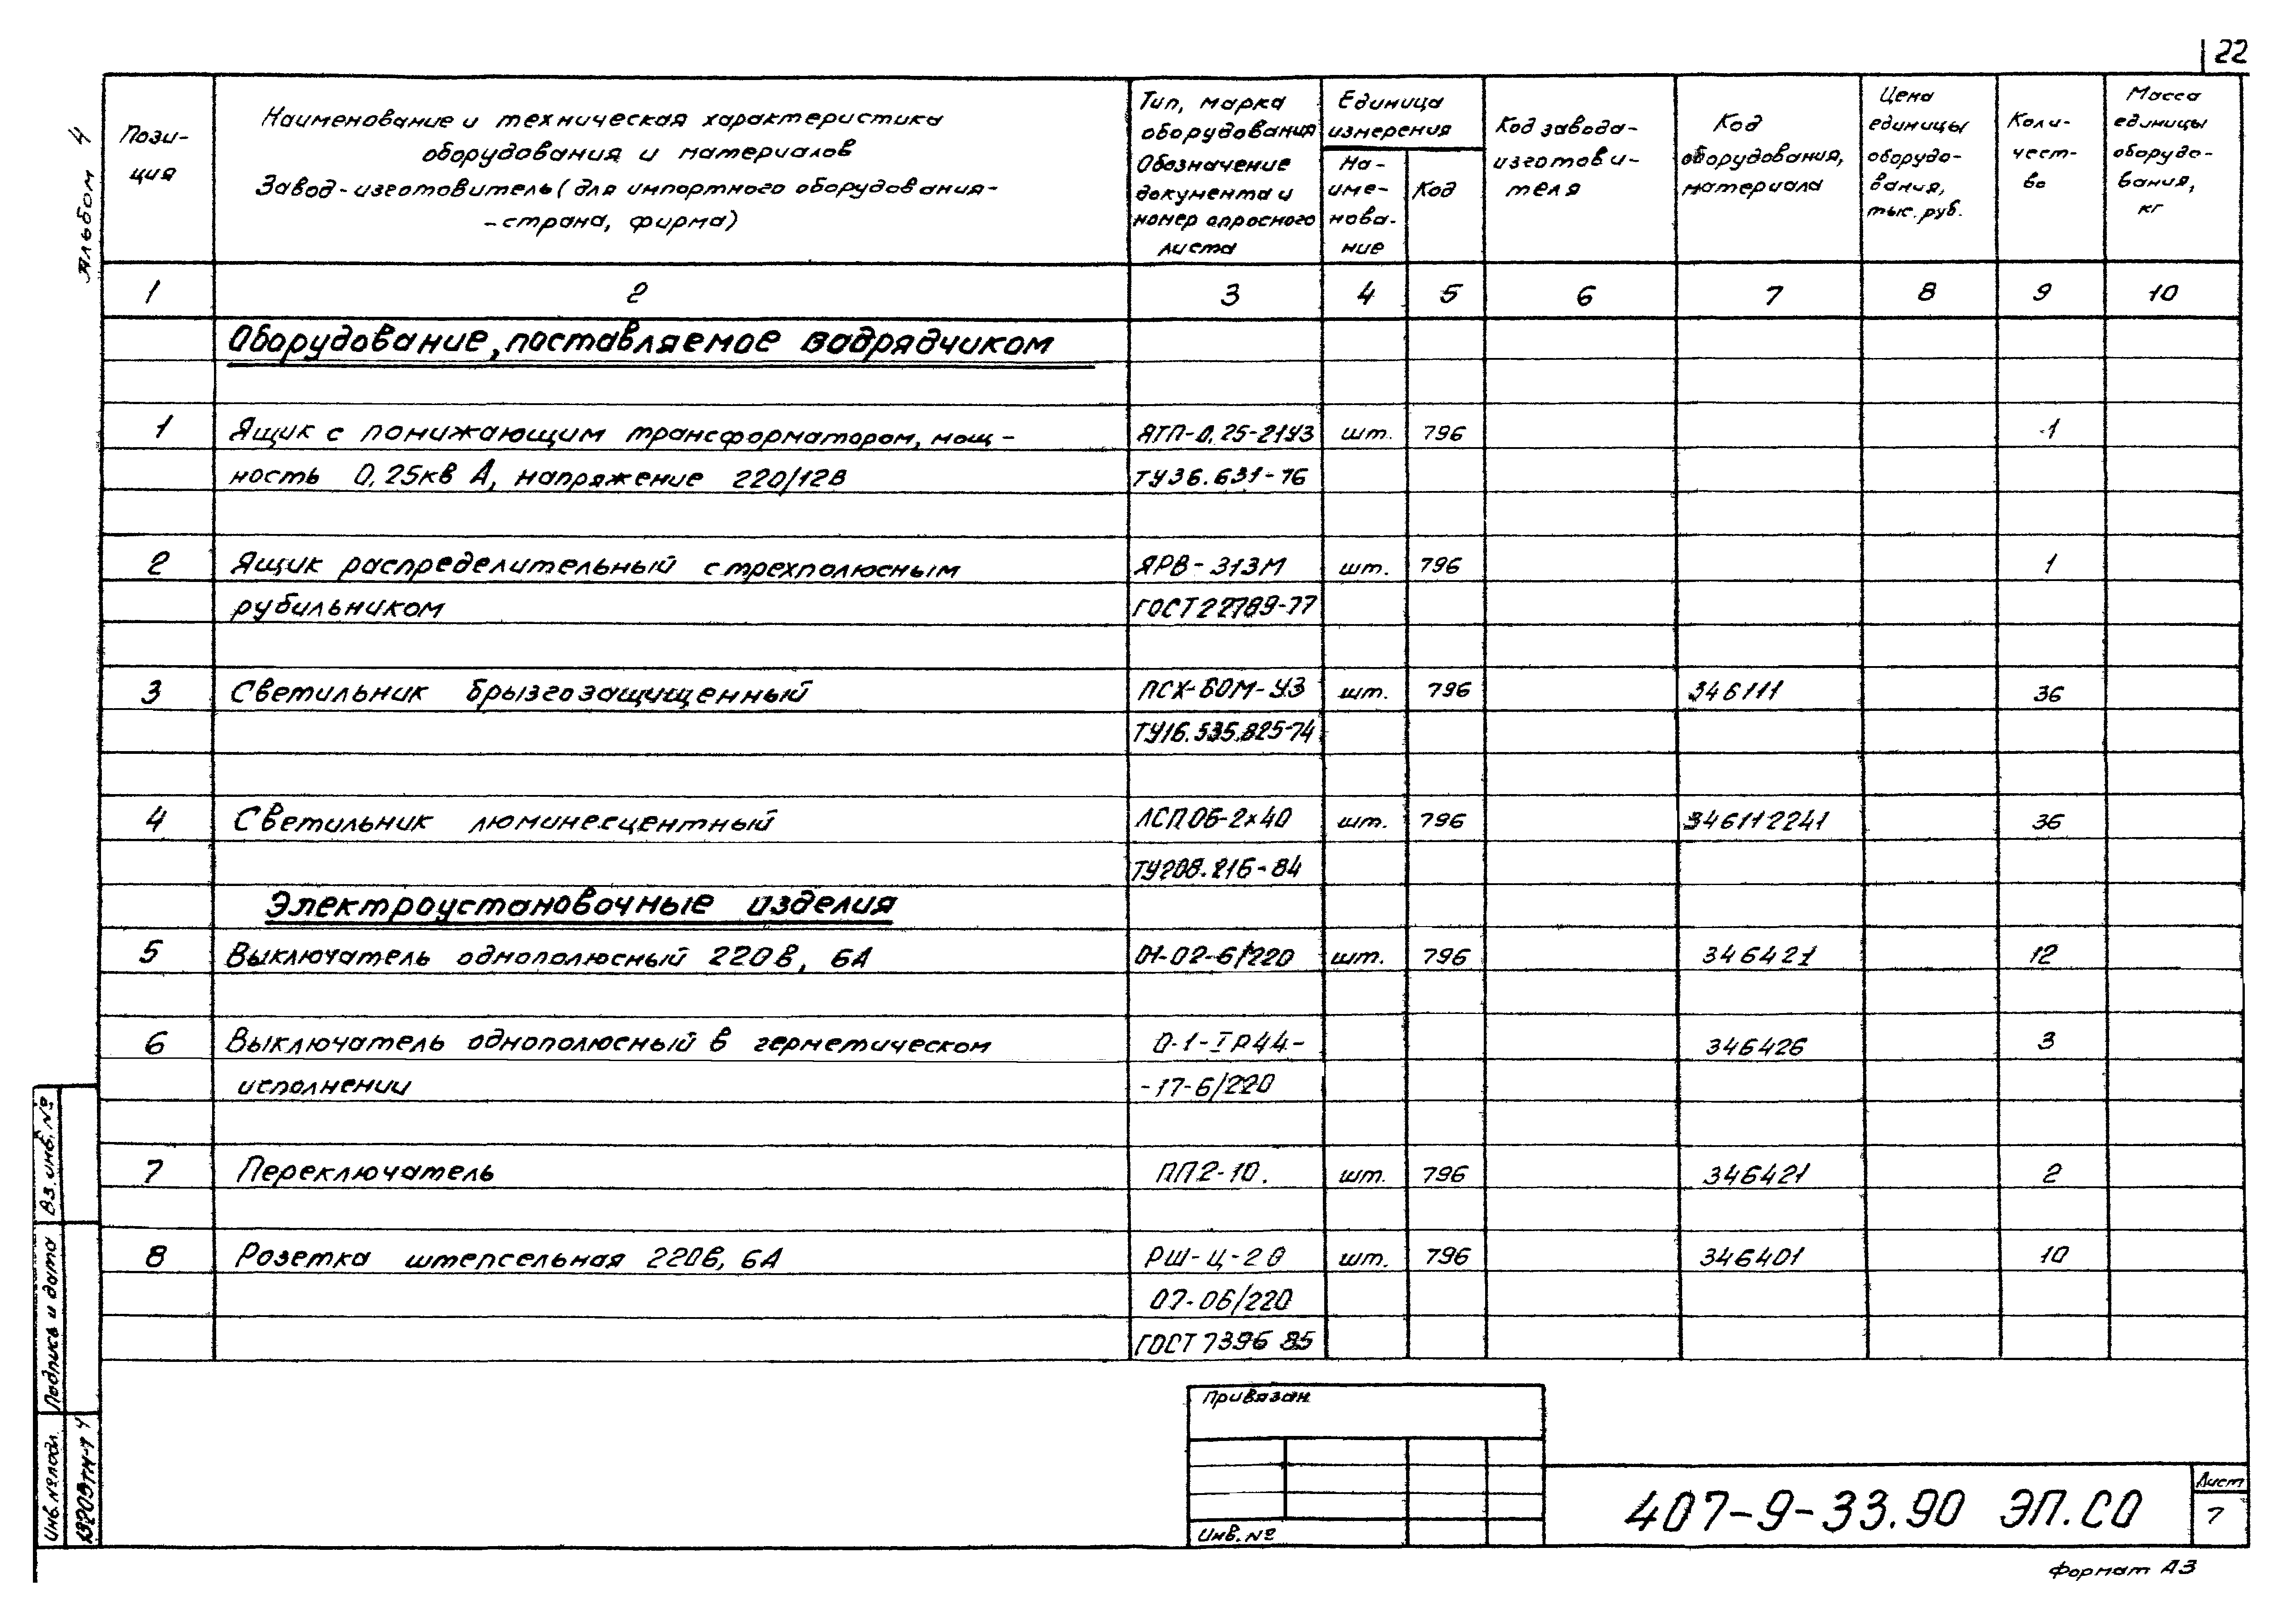 22
Альбом 4
Пози-
ция
Наименование и техническая характеристика
оборудования и материалов
Завод-изготовитель (для импортного оборудования-
-страна, фирма)
Тип, марка
оборудования
Обозначение
документа и
номер опросного
листа
Единица
измерения
На-
име-
нова-
ние
Код
Код завода-
изготови-
теля
Код
оборудования,
материала
Цена
единицы
оборудо-
вания,
тыс. руб.
Коли-
чест-
во
Масса
единицы
оборудо-
вания,
кг
1 2 3 4 5 6 7 8 9 10
Оборудование, поставляемое подрядчиком
1 Ящик с понижающим трансформатором, мощ- ЯТП-0,25-21У3 шт. 796 1
ность 0,25кв А, напряжение 220/12В ТУ36.631-76
2 Ящик распределительный с трехполюсным ЯРВ-313М шт. 796 1
рубильником ГОСТ22789-77
3 Светильник брызгозащищенный ПСХ-60М-У3 шт. 796 346111 36
ТУ16.535.825-74
4 Светильник люминесцентный ЛСП06-2×40 шт. 796 346112241 36
ТУ208.216-84
Электроустановочные изделия
5 Выключатель однополюсный 220В, 6А 01-02-6/220 шт. 796 346421 12
6 Выключатель однополюсный в герметическом 0-1-IP44- 346426 3
исполнении -17-6/220
7 Переключатель ПП2-10. шт. 796 346421 2
8 Розетка штепсельная 220В, 6А РШ-Ц-20 шт. 796 346401 10
07-06/220
ГОСТ 7396 85
Вз. инв. №
Подпись и дата
Инв. № подл.
Привязан
Инв. №
407-9-33.90 ЭП.СО
Лист
7
Формат А3